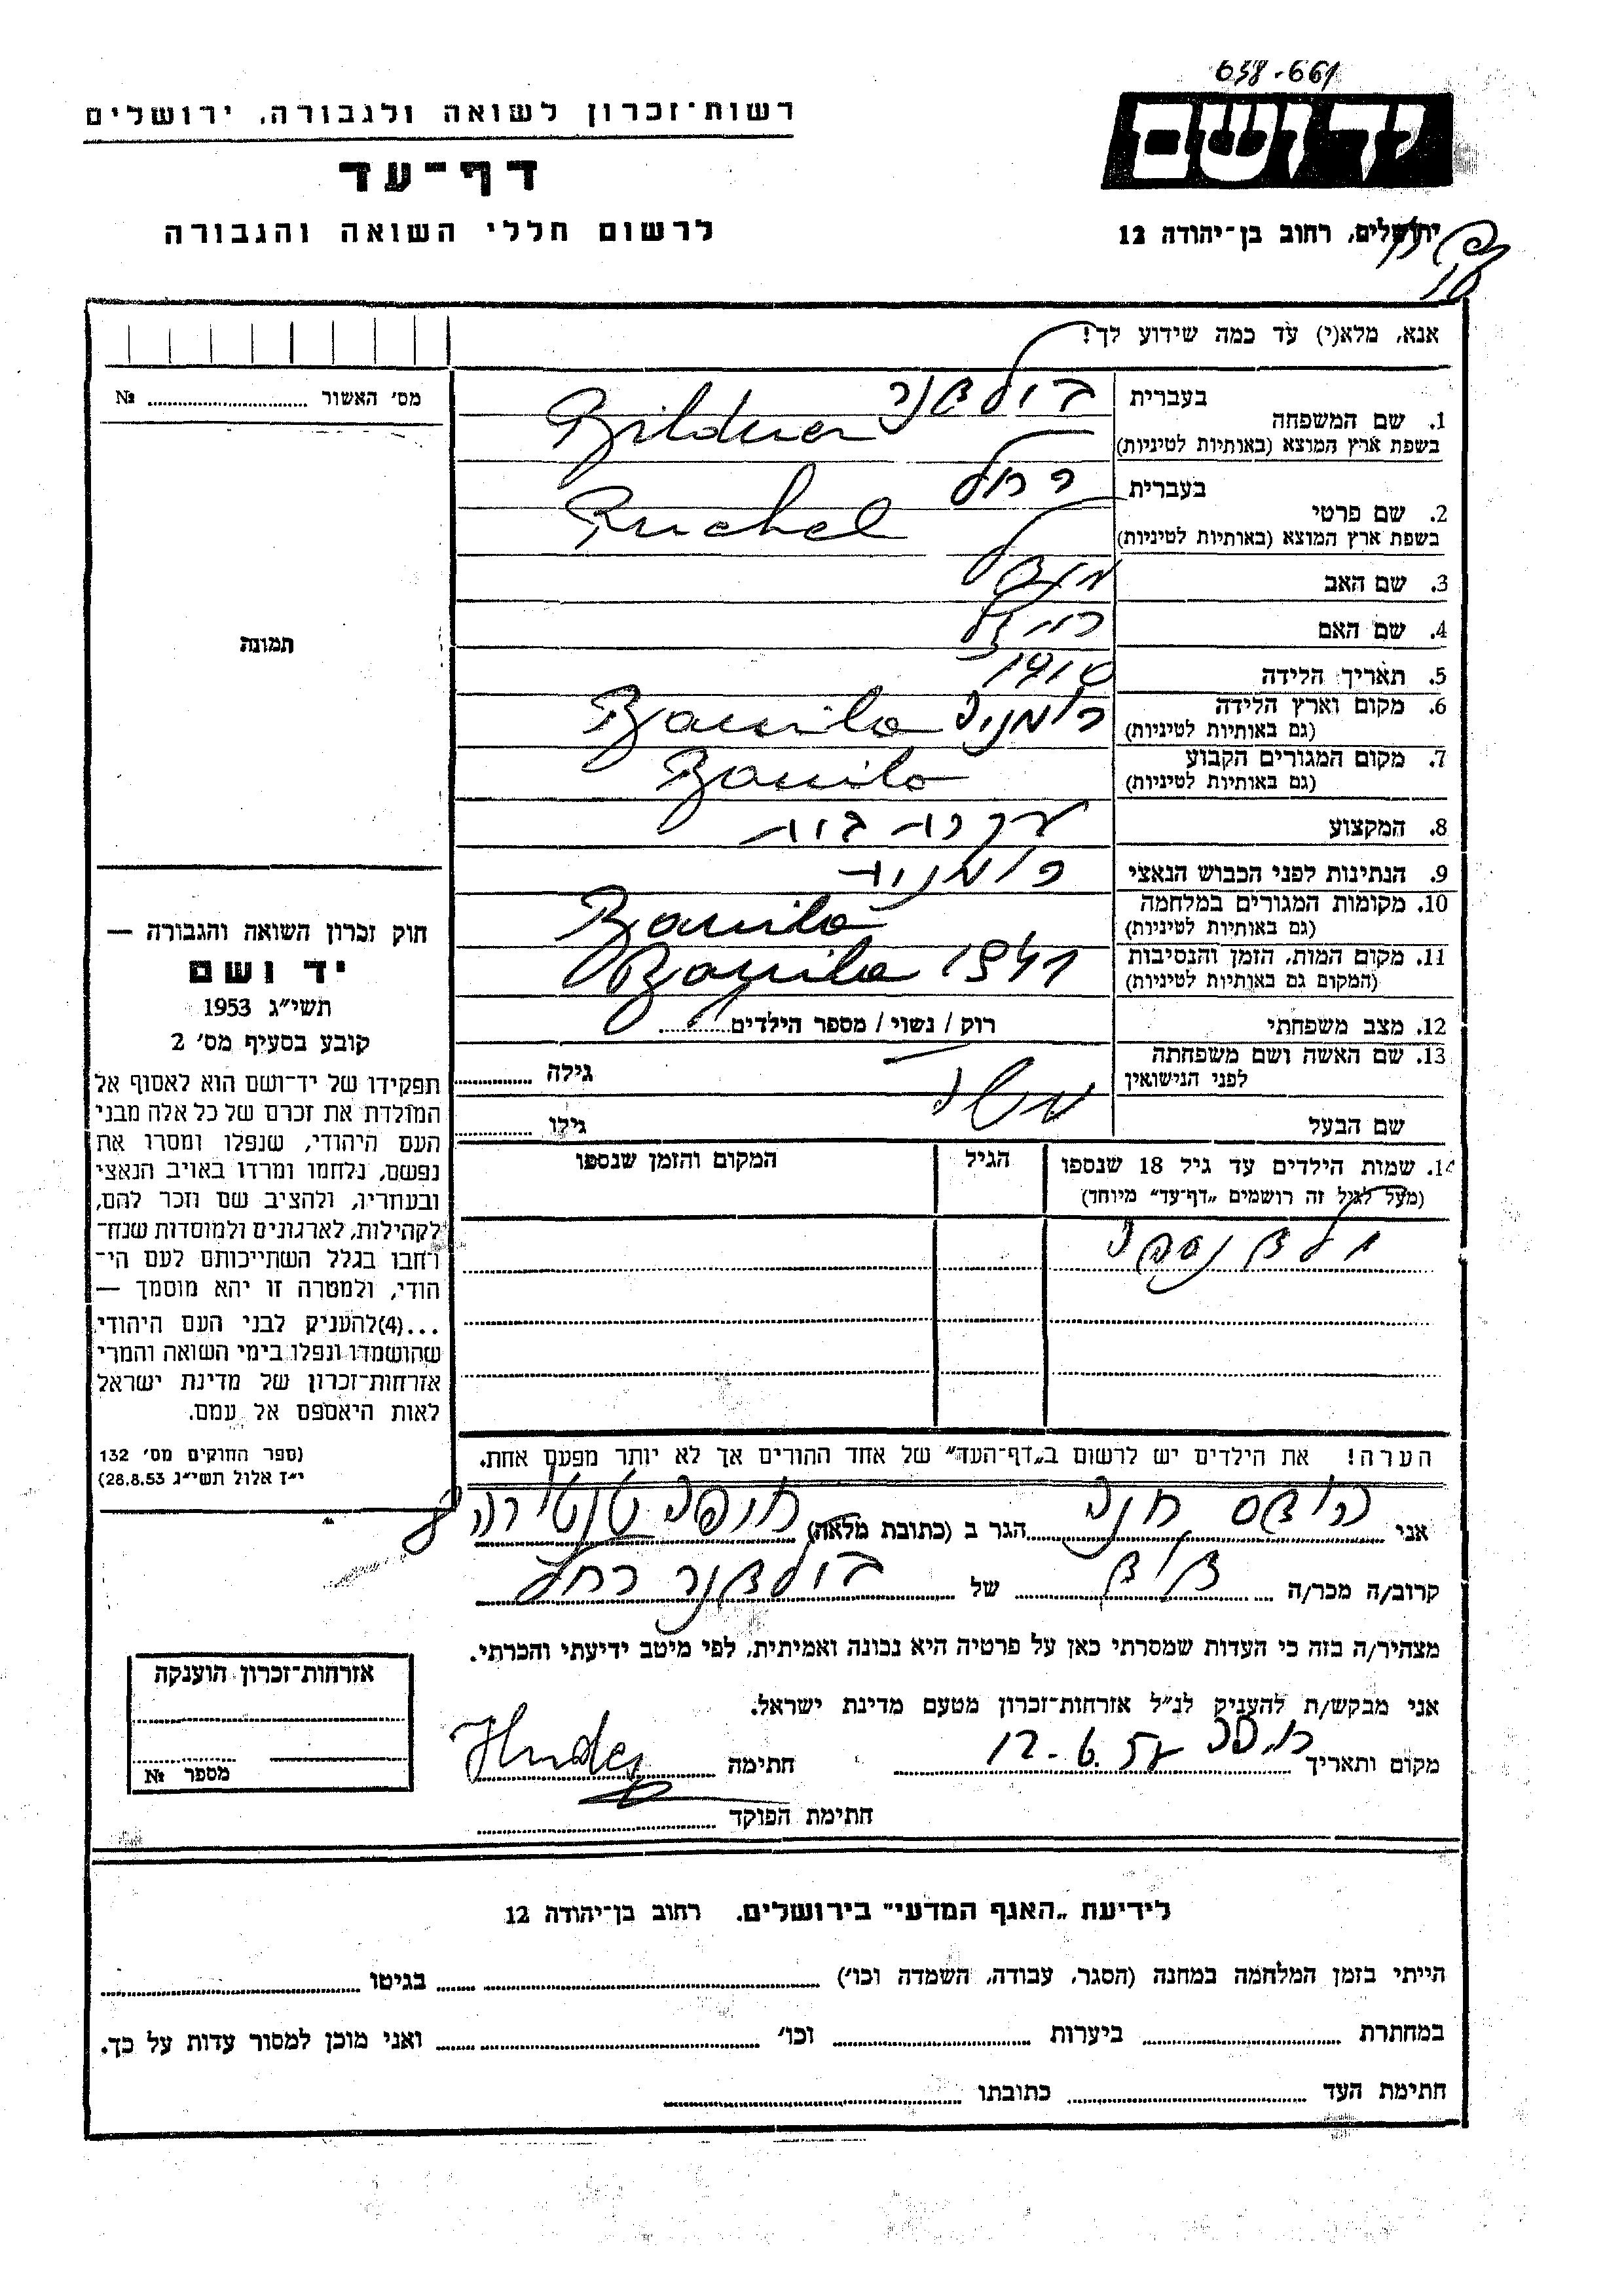 638-661
רשות־זכרון לשואה ולגבורה, ירושלים
דף־עד
לרשום חללי השואה והגבורה
ידושם
ירושלים, רחוב בן־יהודה 12
אנא, מלא(י) עד כמה שידוע לך!
מס׳ האשור № 
1. שם המשפחה
בעברית בילדנר
בשפת ארץ המוצא (באותיות לטיניות) Bildner
2. שם פרטי
בעברית רחל
בשפת ארץ המוצא (באותיות לטיניות) Ruchel
3. שם האב מנדל
4. שם האם רייזל
5. תאריך הלידה 1910
6. מקום וארץ הלידה רומניה Banila
(גם באותיות לטיניות)
7. מקום המגורים הקבוע Banila
(גם באותיות לטיניות)
8. המקצוע עקרת בית
9. הנתינות לפני הכבוש הנאצי רומנית
10. מקומות המגורים במלחמה Banila
(גם באותיות לטיניות)
11. מקום המות, הזמן והנסיבות Banila 1941
(המקום גם באותיות לטיניות)
12. מצב משפחתי רוק / נשוי / מספר הילדים
13. שם האשה ושם משפחתה לפני הנישואין גילה
שם הבעל משה גילו
14. שמות הילדים עד גיל 18 שנספו הגיל המקום והזמן שנספו
(מעל לגיל זה רושמים „דף־עד״ מיוחד)
ילד נספה
הערה! את הילדים יש לרשום ב„דף־העד״ של אחד ההורים אך לא יותר מפעם אחת.
תמונה
חוק זכרון השואה והגבורה —
יד ושם
תשי״ג 1953
קובע בסעיף מס׳ 2
תפקידו של יד־ושם הוא לאסוף אל
המולדת את זכרם של כל אלה מבני
העם היהודי, שנפלו ומסרו את
נפשם, נלחמו ומרדו באויב הנאצי
ובעוזריו, ולהציב שם וזכר להם,
לקהילות, לארגונים ולמוסדות שנח־
רחבו בגלל השתייכותם לעם הי־
הודי, ולמטרה זו יהא מוסמך —
...(4)להעניק לבני העם היהודי
שהושמדו ונפלו בימי השואה והמרי
אזרחות־זכרון של מדינת ישראל
לאות היאספם אל עמם.
(ספר החוקים מס׳ 132
י״ז אלול תשי״ג 28.8.53)
אני הודס חנה הגר ב (כתובת מלאה) חיפה טירה
קרוב/ה מכר/ה דוד של בילדנר רחל
מצהיר/ה בזה כי העדות שמסרתי כאן על פרטיה היא נכונה ואמיתית, לפי מיטב ידיעתי והכרתי.
אני מבקש/ת להעניק לנ״ל אזרחות־זכרון מטעם מדינת ישראל.
מקום ותאריך 12-6.57 חתימה Hudes
חתימת הפוקד
אזרחות־זכרון הוענקה
מספר №
לידיעת „האגף המדעי״ בירושלים, רחוב בן־יהודה 12
הייתי בזמן המלחמה במחנה (הסגר, עבודה, השמדה וכו׳) בגיטו
במחתרת ביערות וכו׳ ואני מוכן למסור עדות על כך.
חתימת העד כתובתו